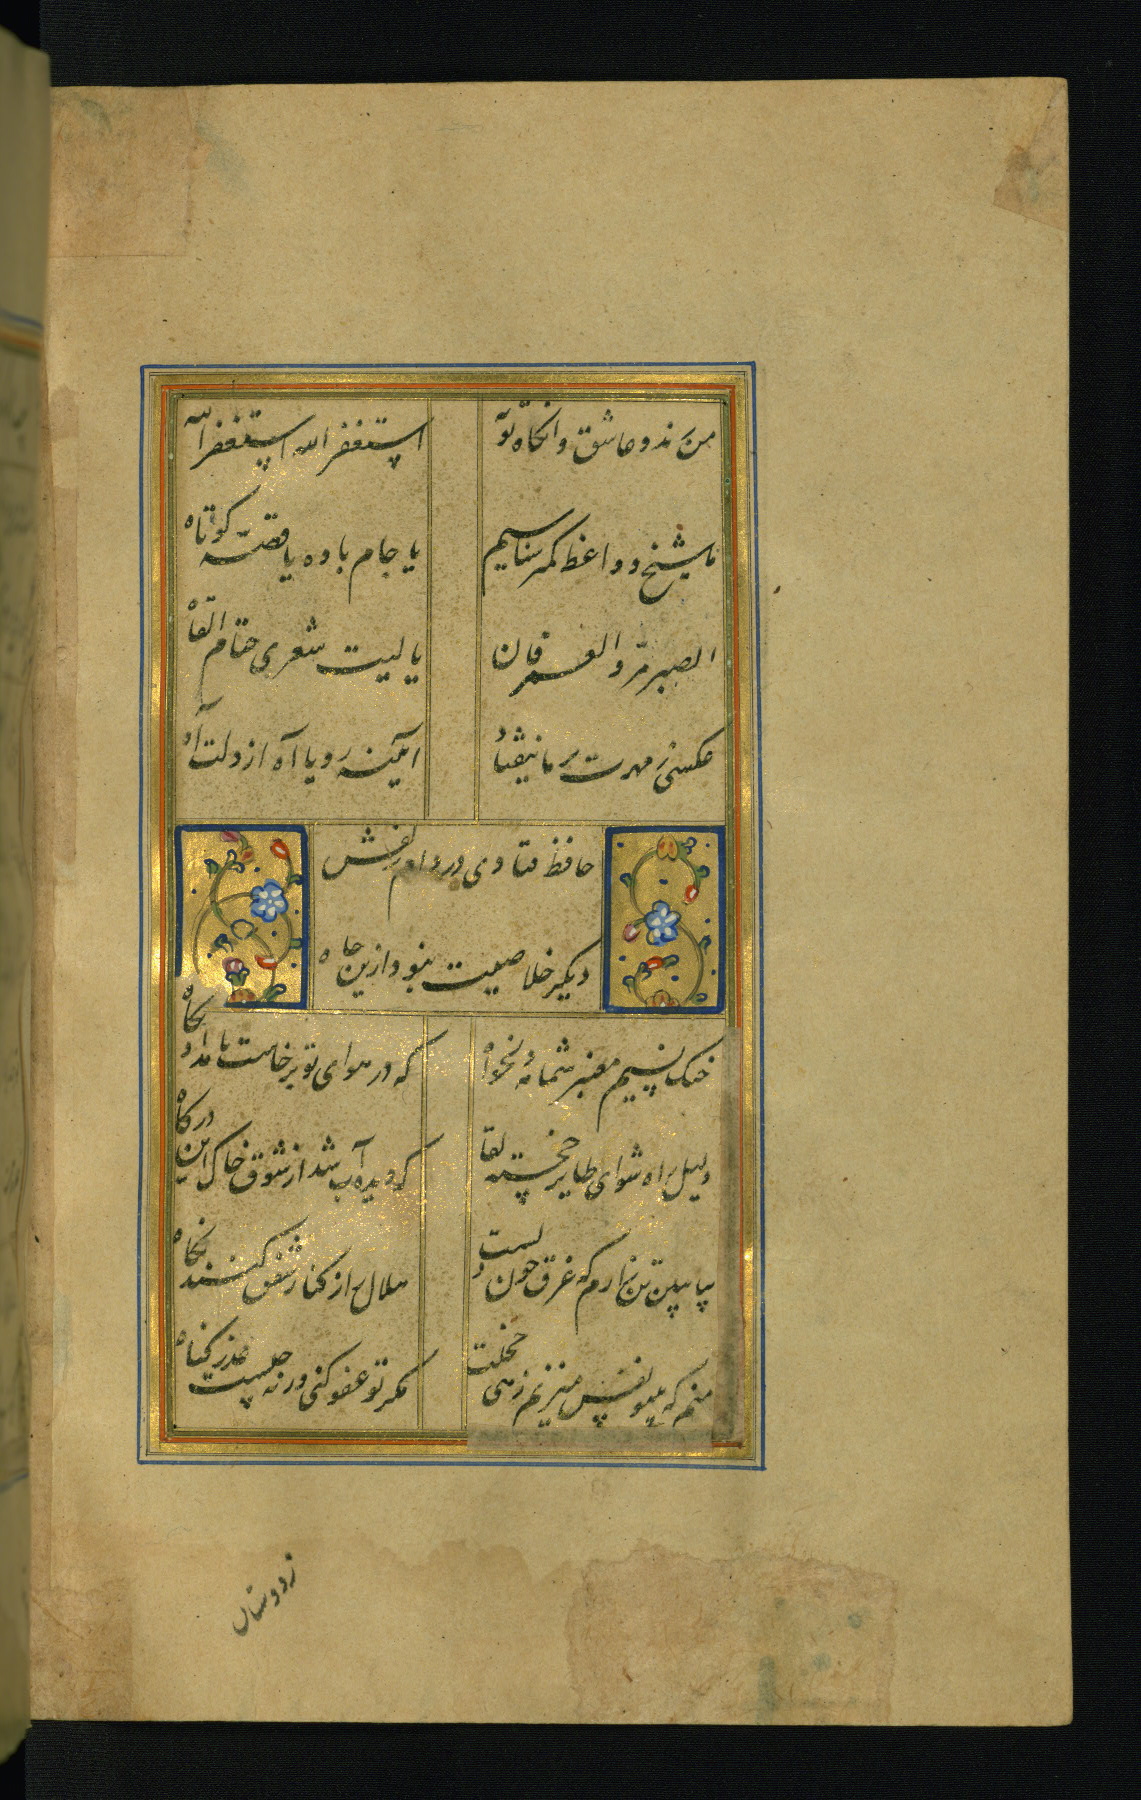 من رند و عاشق وانگاه توبه
استغفر الله استغفر الله
ما شیخ و واعظ کمتر شناسیم
یا جام باده یا قصّه کوتاه
الصبر مرّ و العمر فان
یا لیت شعری حتام القاه
عکسی ز مهرت بر ما نیفتاد
آیینه رویا آه از دلت آه
حافظ فتادی در دام زلفش
دیگر خلاصیت نبود ازین چاه
خنک نسیم معنبر شمامه دلخواه
که در هوای تو برخاست بامداد نگاه
دلیل راه شو ای طایر خجسته لقا
که دیده آب شد از شوق خاک این درگاه
بیا ببین تن زارم که غرق خون دلست
هلال را ز کنار شفق کنند نگاه
منم که بیتو نفس میزنم زهی خجلت
مگر تو عفو کنی ورنه چیست عذر گناه
ز دوستان